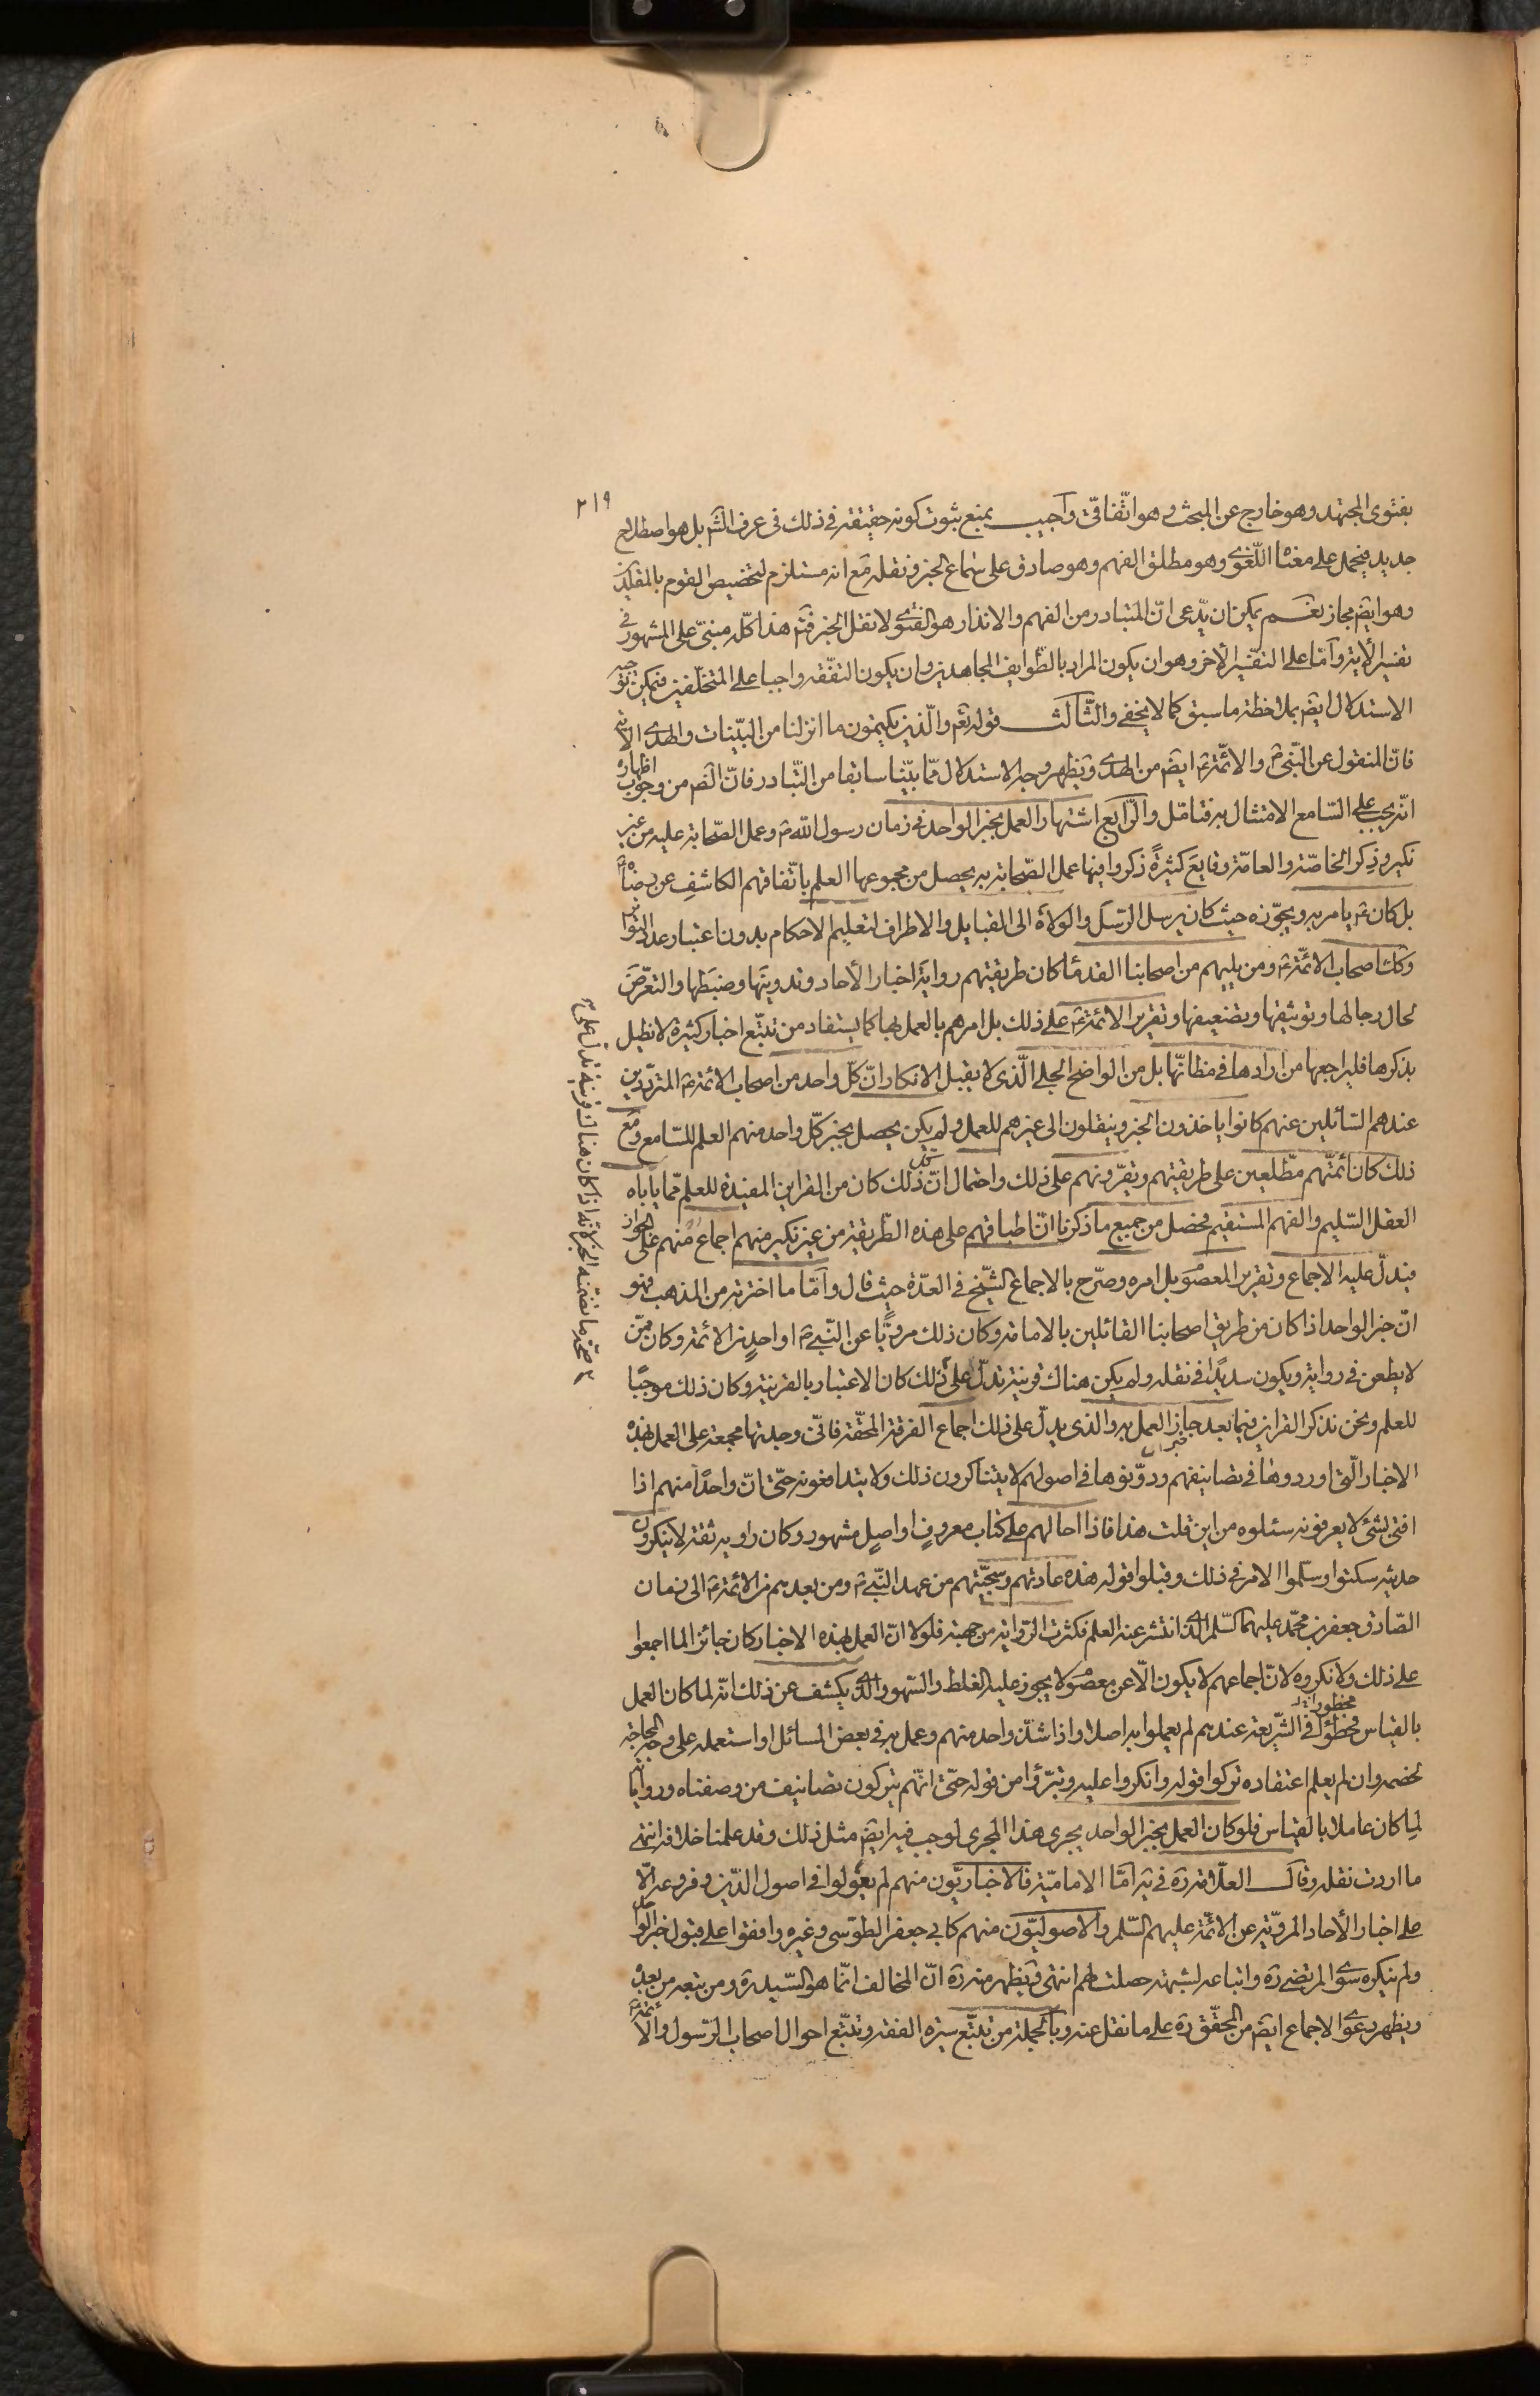 ٢١٩
بفتوى المجتهد وهو خارج عن المبحث وهو اتّفاقىّ وأجيب بمنع ثبوت كونه حقيقة فى ذلك فى عرف الشّ بل هو اصطلاح
جديد فيحمل على معناه اللّغوى وهو مطلق الفهم وهو صادق على سماع الخبر ونقله مع انه مستلزم لتخصيص القوم بالمقلّدين
وهو ايضً مجاز نعم يمكن ان يدّعى انّ المتبادر من الفهم والانذار هو الفتوى لا نقل الخبر فتم هذا كلّه مبنىّ على المشهور فى
تفسير الأية وأمّا على التفسير الأخر وهو ان يكون المراد بالطّوايف المجاهدين وان يكون التفقّه واجبا على المتخلّفين فيمكن توجيه
الاستدلال ايضً بملاحظة ما سبق كما لا يخفى والثّالث قوله تعً والّذين يكتمون ما انزلنا من البيّنات والهدى الأية
فانّ المنقول عن النّبىّ ص والأئمّة ع ايضً من الهدى ويظهر وجه الاستدلال ممّا بيّنا سابقا من التّبادر فانّ الظم من وجوب اظهاره
انّه يجب على السّامع الامتثال به فتامّل والرّابع اشتهار العمل بخبر الواحد فى زمان رسول اللّه ص وعمل الصّحابة عليه من غير
نكير وذكر الخاصّة والعامّة وقايعَ كثيرةً ذكروا فيها عمل الصّحابة به يحصل من مجموعها العلم باتّفاقهم الكاشفِ عن رضاه ع
بل كان ع يامر به ويجوّزه حيث كان يرسل الرّسل والولاة الى القبايل والاطراف لتعليم الاحكام بدون اعتبار عدد التّواتر
وكذا اصحاب الأئمّة ع ومن يليهم من اصحابنا القدمأ كان طريقتهم رواية اخبار الأحاد وتدوينَها وضبطَها والتعرّضَ
لحال رجالها وتوثيقها وتضعيفها وتقرير الائمّة ع على ذلك بل امرهم بالعمل بها كما يستفاد من تتبّع اخبار كثيرة لا نطيل
بذكرها فليراجعها من ارادها فى مظانّها بل من الواضح الجلى الّذى لا يقبل الانكار انّ كلّ واحد من اصحاب الائمّة ع المتردّدين
عندهم السّائلين عنهم كانوا ياخذون الخبر وينقلون الى غيرهم للعمل ولم يكن يحصل بخبر كلّ واحد منهم العلم للسّامع ومع
ذلك كان أئمّتهم مطّلعين على طريقتهم ويقرّونهم على ذلك واحتمال انّ كل ذلك كان من القراين المفيدة للعلم ممّا ياباه
العقل السّليم والفهم المستقيم فحصل من جميع ما ذكرنا انّ اطباقهم على هذه الطّريقة من غير نكير منهم اجماعٌ منهم على الجواز
فيدلّ عليه الاجماع وتقرير المعصوم بل امره وصرّح بالاجماع الشّيخ فى العدّة حيث قال وأمّا ما اخترته من المذهب فهو
انّ خبر الواحد اذا كان من طريق اصحابنا القائلين بالامامة وكان ذلك مرويًّا عن النّبىّ ص او واحدٍ من الائمّة وكان ممّن
لا يطعن فى روايته ويكون سديدًا فى نقله ولم يكن هناك قرينة تدلّ على ذلك كان الاعتبار بالقرينة وكان ذلك موجبًا
للعلم ونحن نذكر القراين فيما بعد جاز العمل به والذى يدلّ على ذلك اجماع الفرقة المحقّة فانّى وجدتها مجمعة على العمل بهذه
الاخبار الّتى اوردوها فى تصانيفهم ودوّنوها فى اصولهم لا يتناكرون ذلك ولا يتدافعونه حتّى انّ واحدًا منهم اذا
افتى بشئ لا يعرفونه سئلوه من اين قلت هذا فاذا احالهم على كتاب معروفٍ او اصلٍ مشهور وكان راويه ثقة لا ينكرون
حديثه سكتوا وسلّموا الامر فى ذلك وقبلوا قوله هذه عادتهم وسجيّتهم من عهد النّبىّ ص ومن بعدهم من الائمّة ع الى زمان
الصّادق جعفر بن محمّد عليهما السّلم الّذى انتشر عنه العلم فكثرت الرّواية من جهته فلولا انّ العمل بهذه الاخبار كان جائزا لما اجمعوا
على ذلك ولانكروه لانّ اجماعهم لا يكون الّا عن معصوم لا يجوز عليه الغلط والسّهو والّذى يكشف عن ذلك انّه لما كان العمل
بالقياس محظورًا فى الشّريعة عندهم لم يعملوا به اصلا واذا شذّ واحد منهم وعمل به فى بعض المسائل او استعمله على وجه المحاجّة
لخصمه وان لم يعلم اعتقاده تركوا قوله وانكروا عليه وتبرّؤا من قوله حتّى انّهم يتركون تصانيف من وصفناه ورواياته
لما كان عاملا بالقياس فلو كان العمل بخبر الواحد يجرى هذا المجرى لوجب فيه ايضً مثل ذلك وقد علمنا خلافه انتهى
ما اردت نقله وقال العلّامة ره فى يه امّا الاماميّة فالاخباريّون منهم لم يعوّلوا فى اصول الدّين وفروعه الّا
على اخبار الأحاد المرويّة عن الائمّة عليهم السّلم والاصوليّون منهم كابى جعفر الطّوسى وغيره وافقوا على قبول خبر الواحد
ولم ينكره سوى المرتضى ره واتباعه لشبهة حصلت لهم انتهى ويظهر منه ره انّ المخالف انّما هو السّيد ره ومن تبعه من بعده
ويظهر دعوى الاجماع ايضً من المحقّق ره على ما نقل عنه وبالجملة من تتبّع سيرة الفقه وتتبّع احوال اصحاب الرّسول والائمّة ع
صحّة ما تضمّنه الخبر لانّه اذا كان هناك قرينة تدلّ على